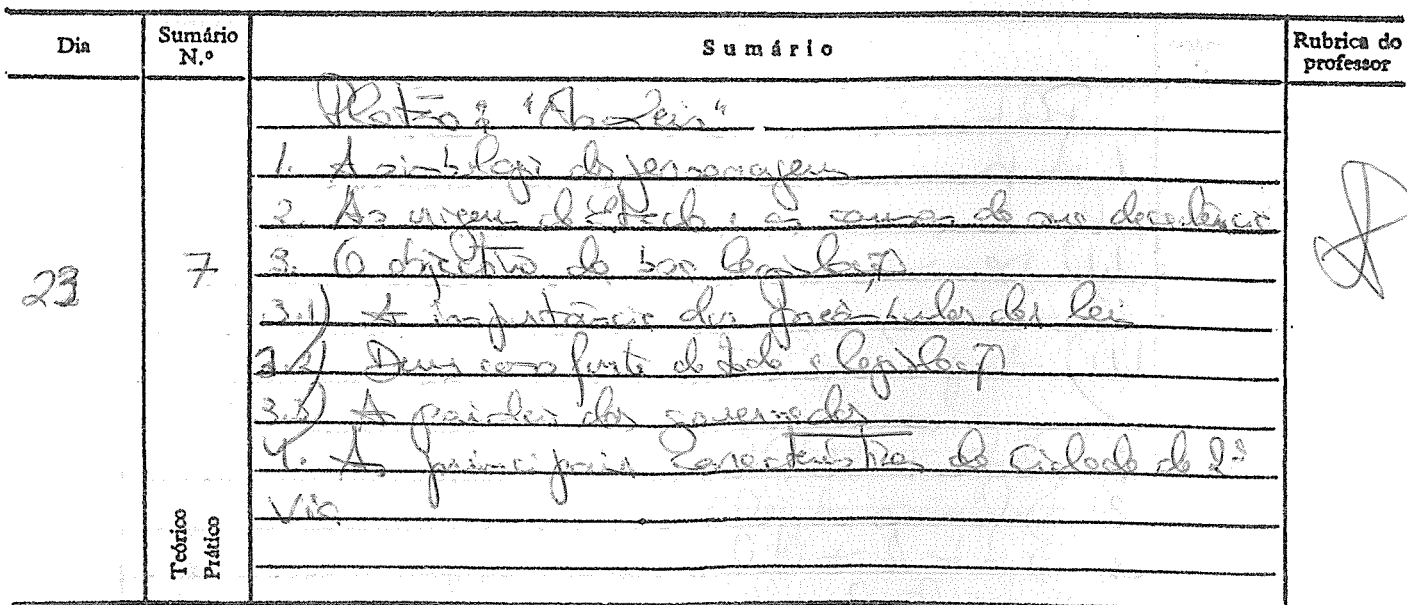 Dia
Sumário N.º
Sumário
Rubrica do professor
Platão: "As Leis"
1. A simbologia dos personagens
2. As origens do Estado e as causas da sua decadência
23
7
3. O objectivo do bom legislador
3.1) A importância dos preâmbulos das leis
3.2) Deus como fonte de toda a legislação
3.3) A paideia dos governados
4. As principais características da Cidade de 2ª
Via
Teórico
Prático